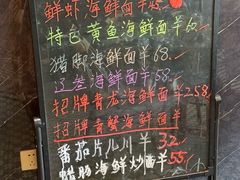 鲜虾海鲜面¥45.
特色黄鱼海鲜面¥60.
猪脚海鲜面¥68.
辽参海鲜面¥58.
招牌青龙海鲜面¥258.
招牌青蟹海鲜面¥
番茄片儿川¥32.
海鲜炒面¥55.